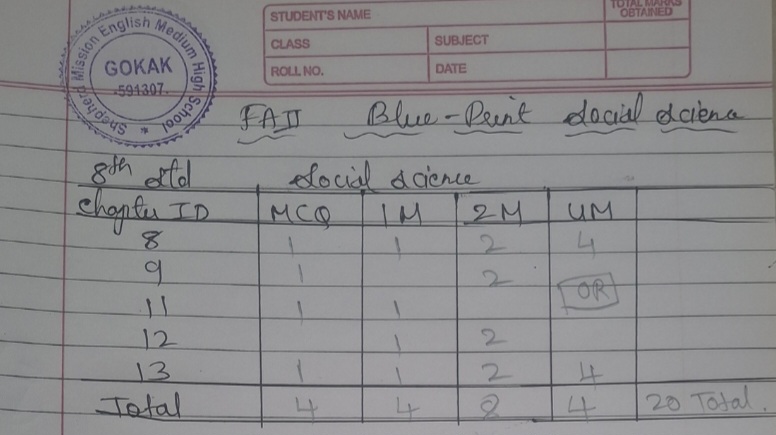 STUDENT'S NAME
TOTAL MARKS OBTAINED
CLASS SUBJECT
ROLL NO. DATE
Shepherd Mission English Medium High School
GOKAK
-591307.
FA II Blue-Print Social Science
8th Std Social Science
Chapter ID MCQ 1M 2M 4M
8 1 1 2 4
9 1 2
OR
11 1 1
12 1 2
13 1 1 2 4
Total 4 4 8 4 20 Total.